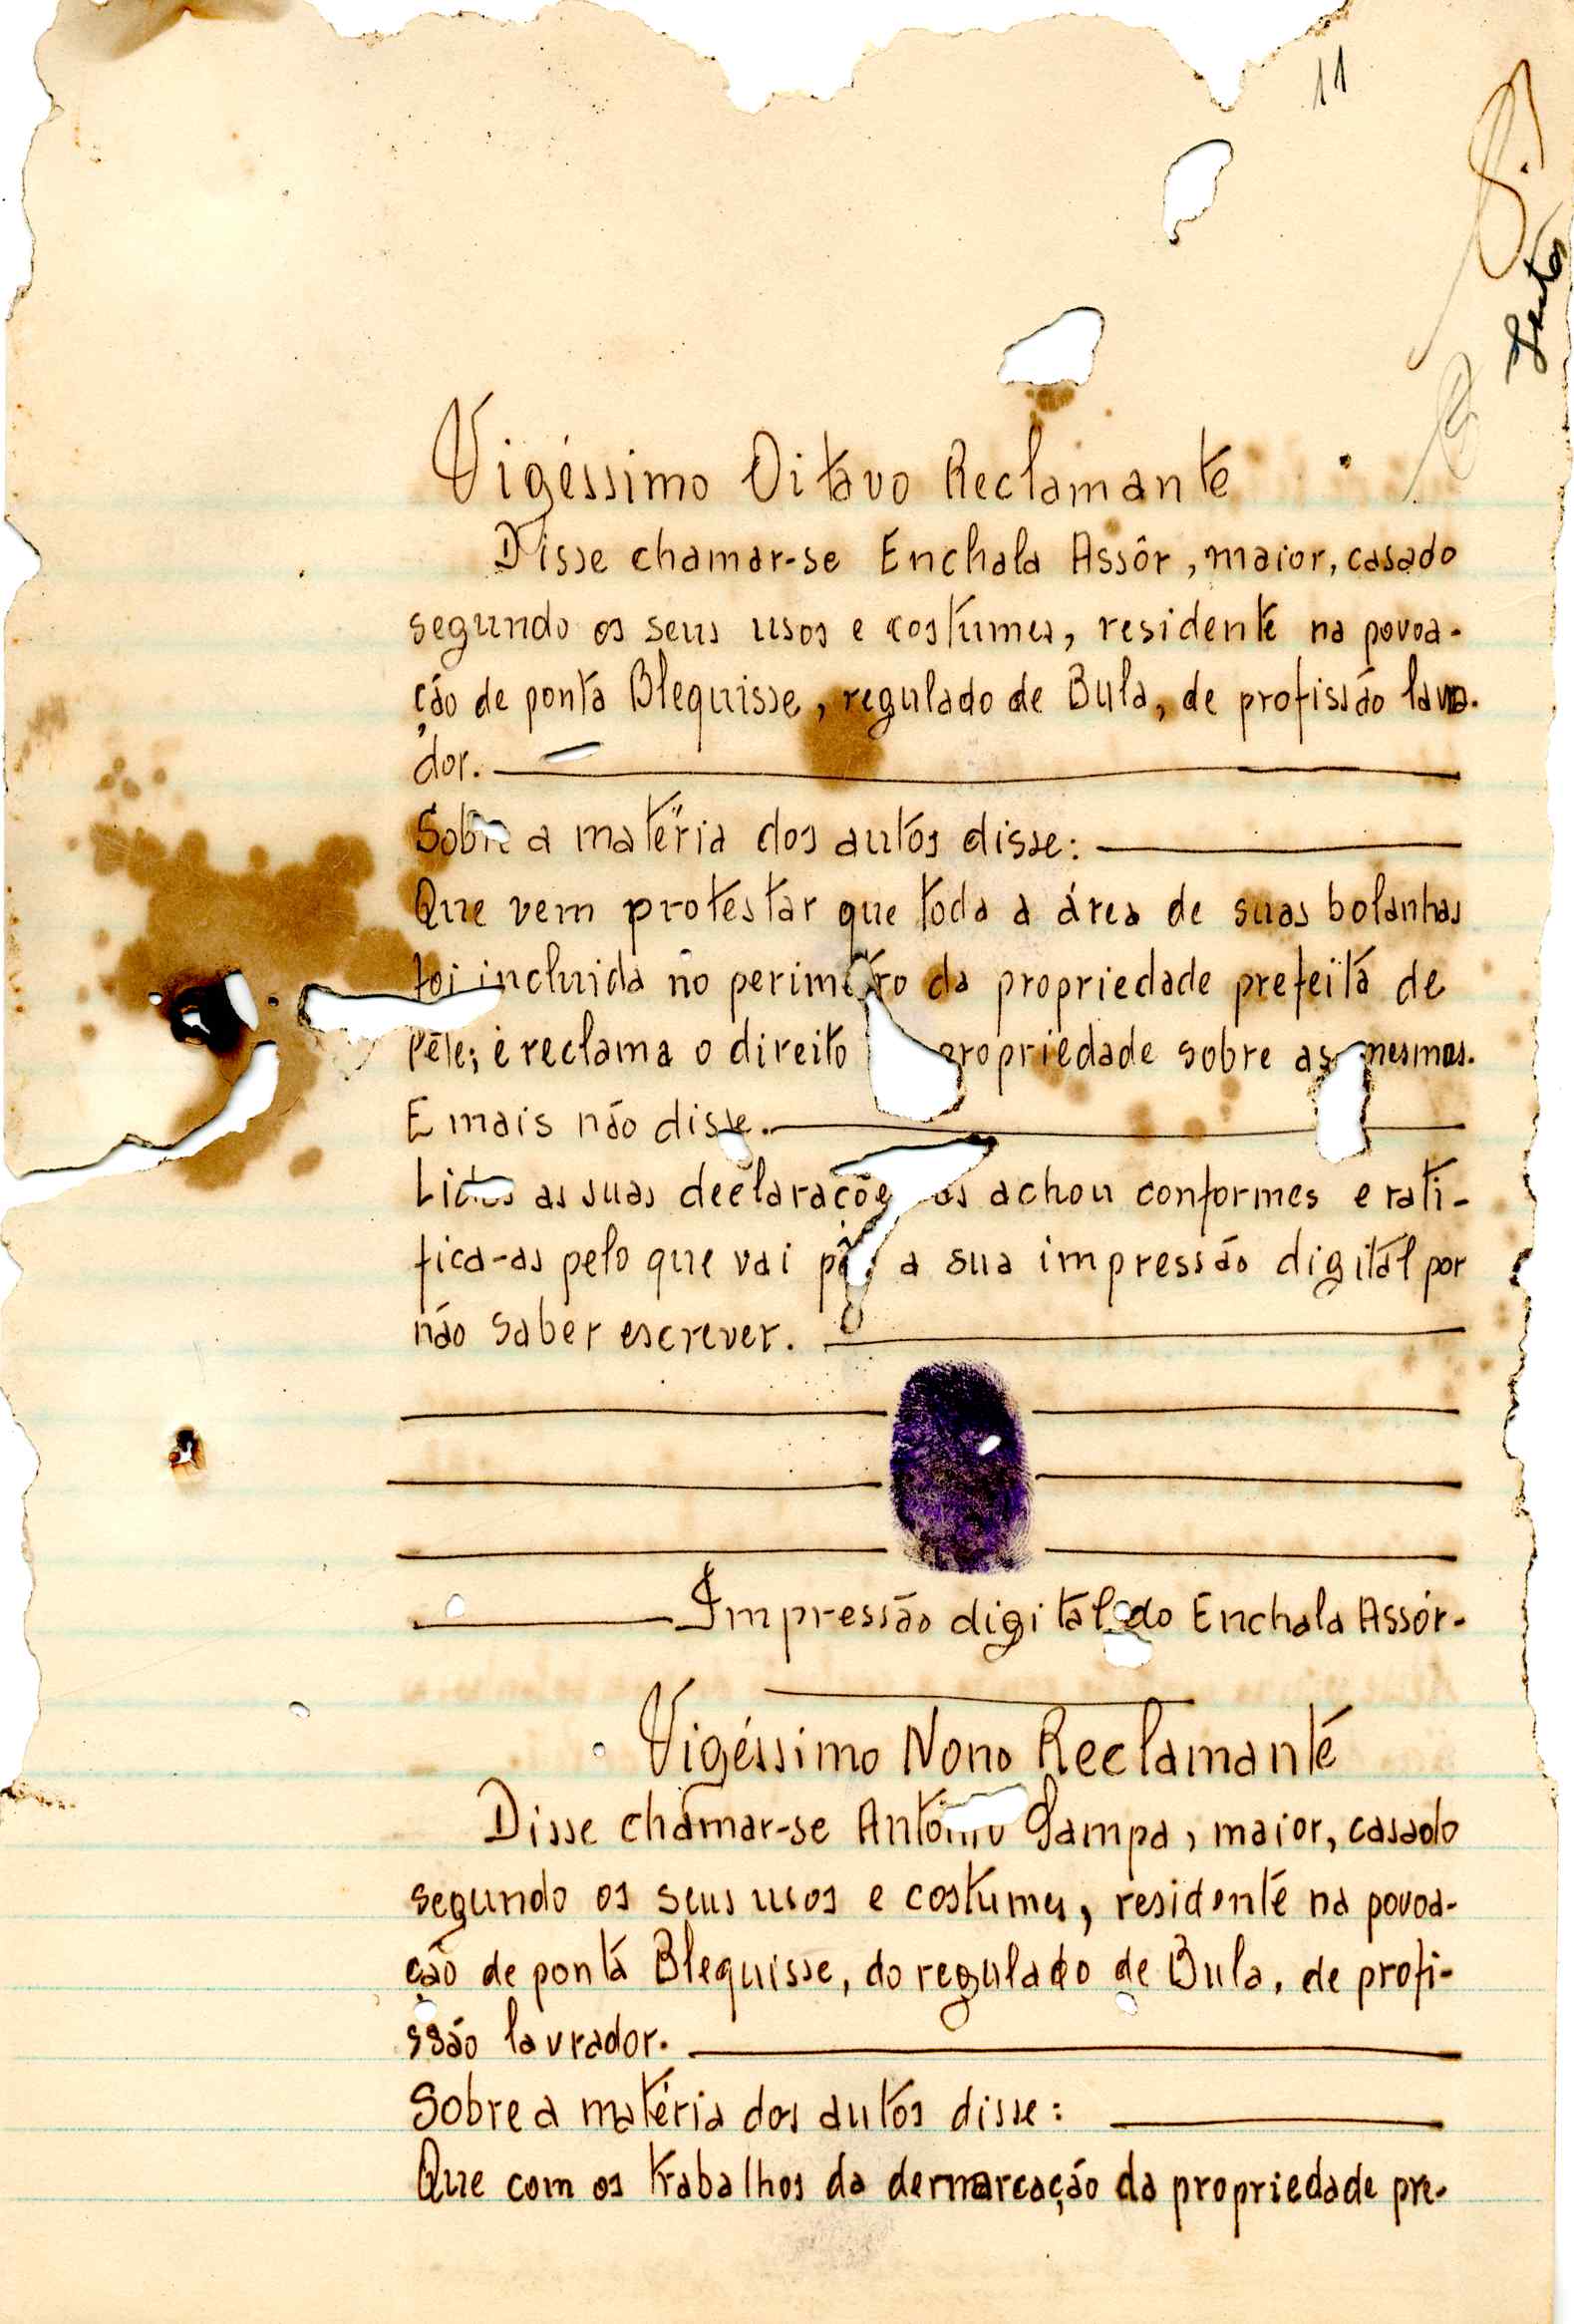 11
Vigéssimo Oitavo Reclamante
Disse chamar-se Enchala Assôr, maior, casado
segundo os seus usos e costumes, residente na povoa-
ção de ponta Blequisse, regulado de Bula, de profissão lavra-
dor.
Sobre a matéria dos autos disse:
Que vem protestar que toda a área de suas bolanhas
foi incluida no perimetro da propriedade prefeita de
Pête; e reclama o direito propriedade sobre as mesmas.
E mais não disse.
Lidas as suas declarações as achou conformes e rati-
fica-as pelo que vai a sua impressão digital por
não saber escrever.
Impressão digital do Enchala Assór-
Vigéssimo Nono Reclamante
Disse chamar-se António Sampa, maior, casado
segundo os seus usos e costumes, residente na povoa-
ção de ponta Blequisse, do regulado de Bula, de profi-
ssão lavrador.
Sobre a matéria dos autos disse:
Que com os trabalhos da demarcação da propriedade pre-